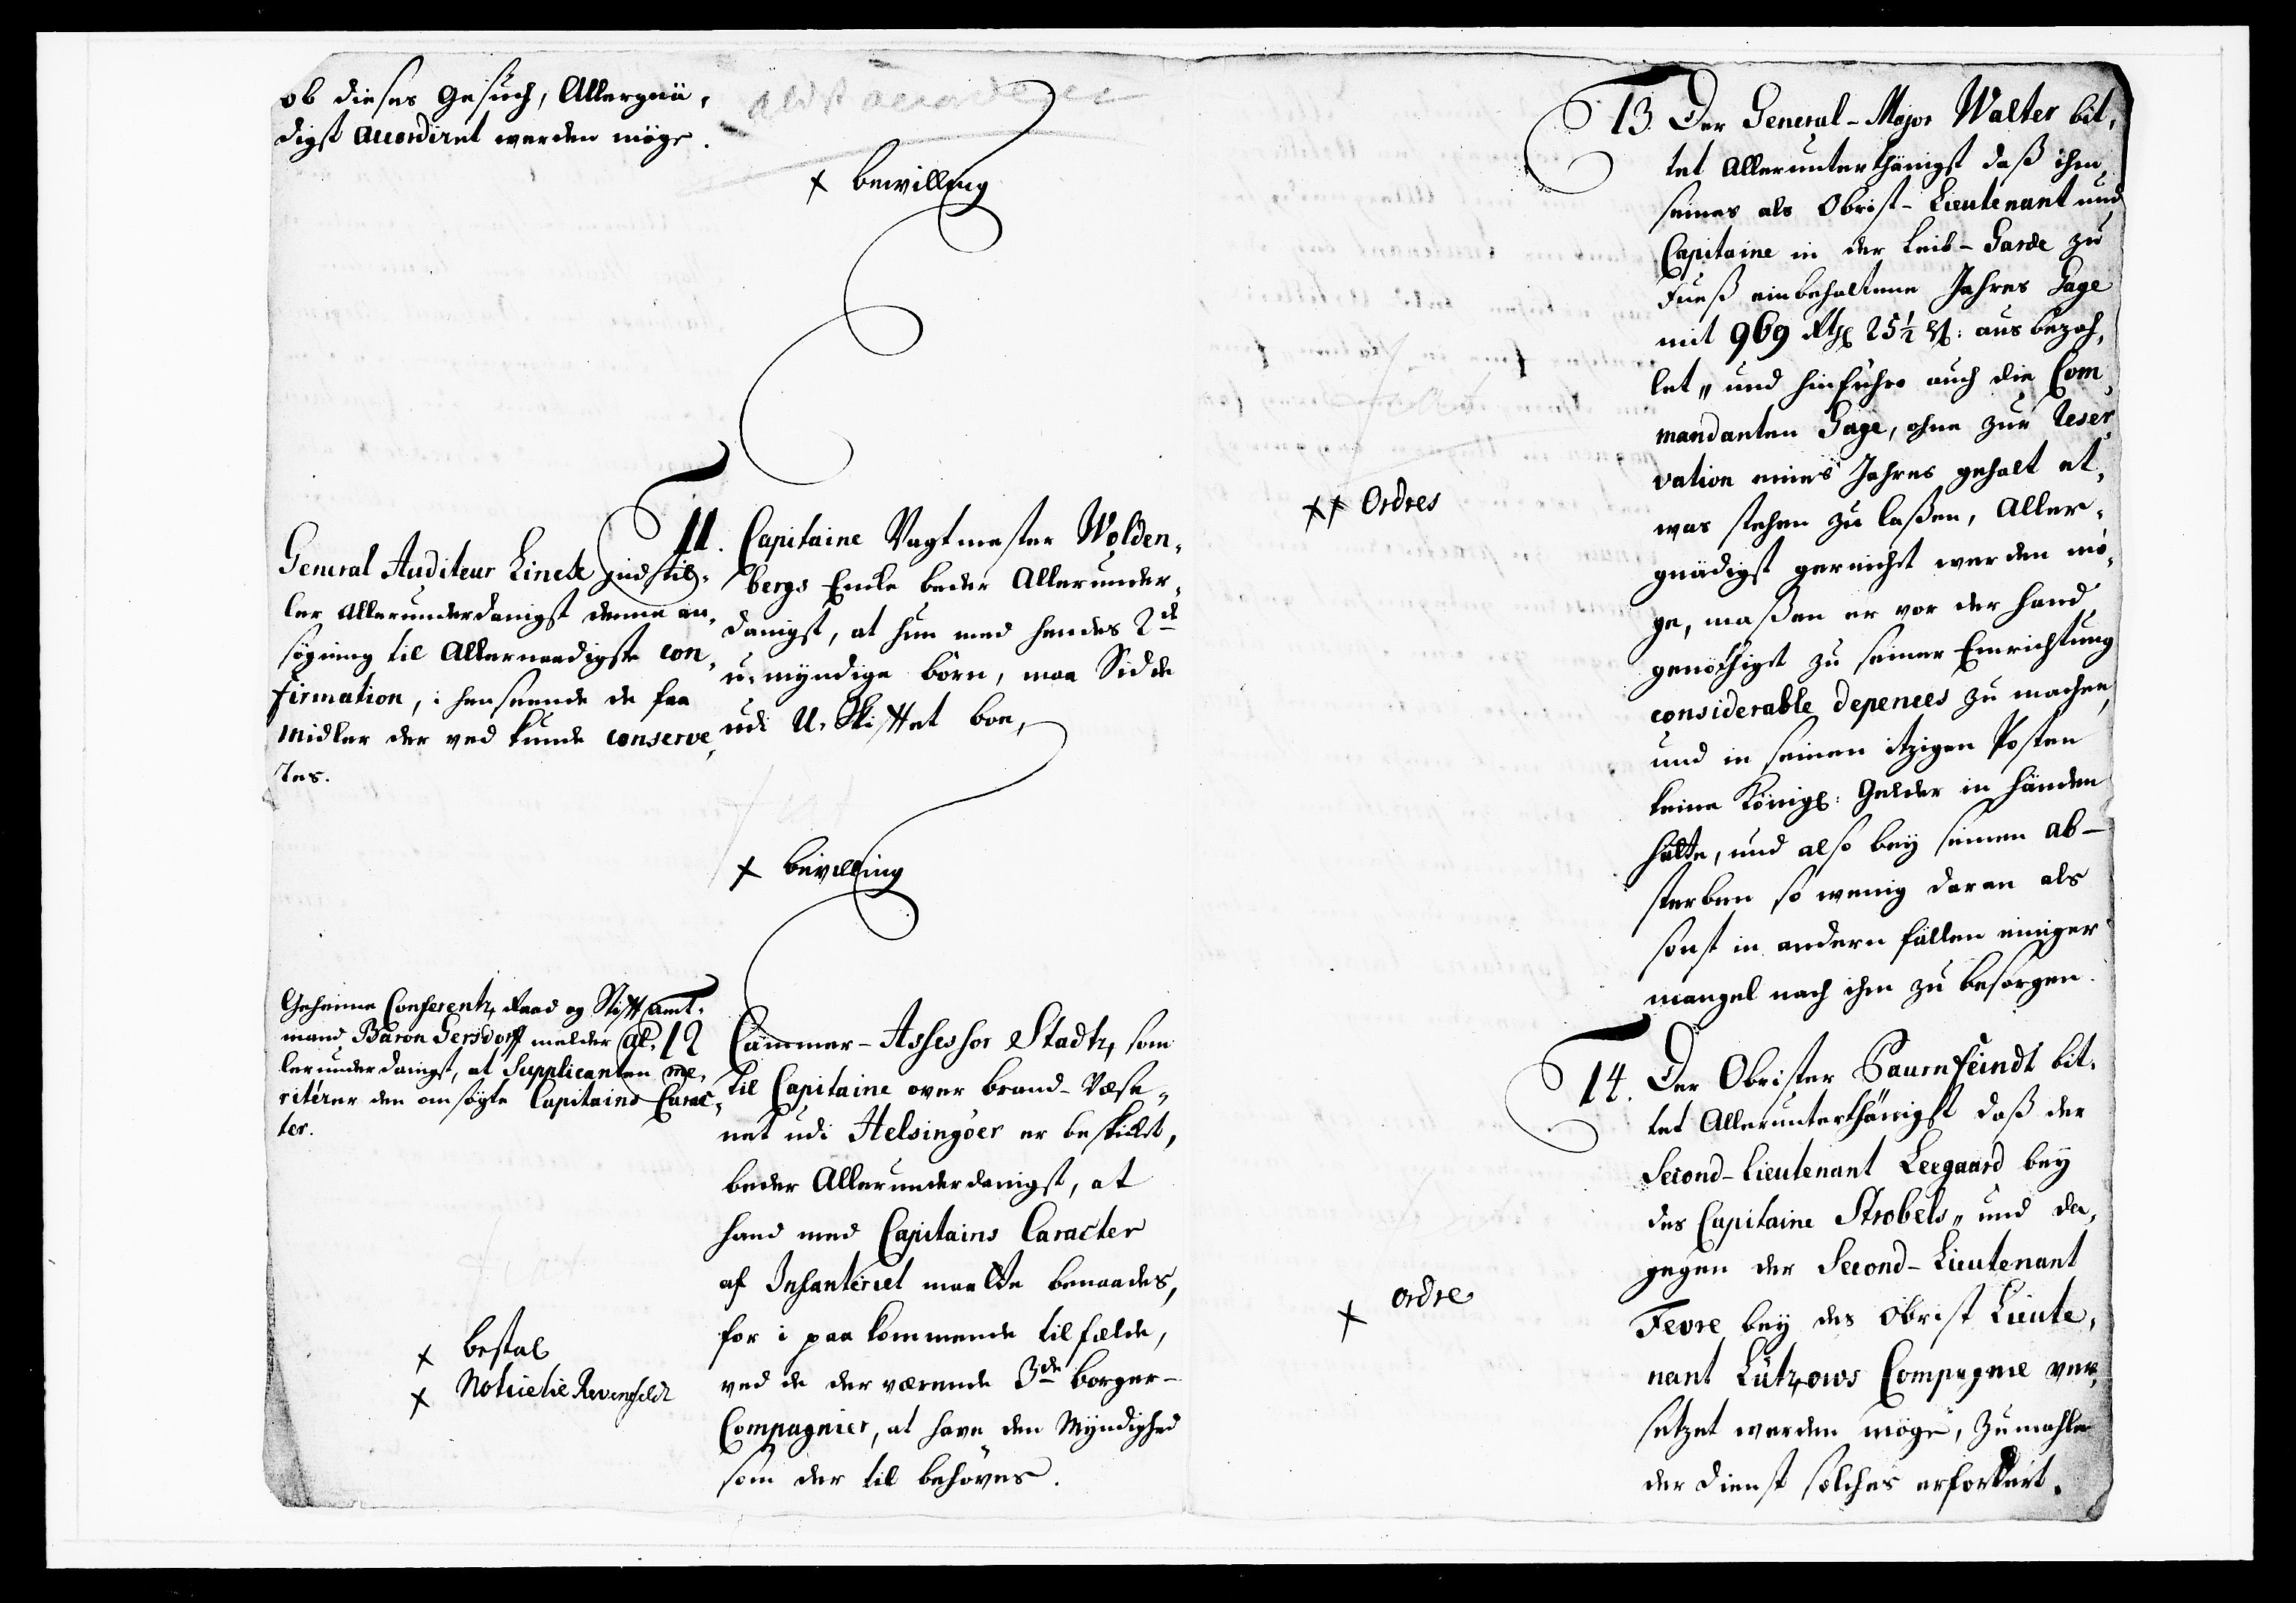 ob dieses Gesuch, Allergnä,
digst accordiret werden möge.
x bewilling
General Auditeur Linck indstil,
ler Allerunderdanigst denne an,
søgning til Allernaadigste con,
firmation, i henseende de faa
Midler der ved kunde conserve,
res.
11. Capitaine Vagtmester Wolden,
bergs Encke beder Allerunder,
danigst, at hun med hendes 2de
u-myndige børn, maa Sidde
udi U-Skifftet boe,
x bevilling
Geheime Conferentz Raad og Stifft Amt,
mand Baron Gersdorff melder Al,
lerunderdanigst, at Supplicanten me,
riterer den ansøgte Capitains Carac,
ter.
12 Cammer-Assessor Stadtz, som
til Capitaine over brand-Væse,
net udi Helsingöer er beskikket,
beder Allerunderdanigst, at
hand med Capitains Caracter
af Infanteriet maatte benaades,
for i paakommende tilfælde,
ved de der værende 3de borger-
Compagnier, at have den Myndighed
som der til behøves.
x bestal
x Noticetie Revenfeldt
13. Der General-Major Walter bit,
tet Allerunterthänigst daß ihm
seines als Obrist-Lieutenant und
Capitaine in der Leib-Garde zu
Fueß einbehaltene Jahres Gage
mit 969 Rthl 25½ ß: ausbezah,
let,, und hinführo auch die Com,
mandanten Gage, ohne zur Reser,
vation eines Jahres gehalt et,
was stehen zu laßen, Aller,
gnädigst gereicht werden mö,
ge, maßen er vor der hand
genöthigt zu seiner Einrichtung
considerable depences zu machen,
und in seinen itzigen Posten
keine Königl: Gelder in händen
hätte, und also bey seinen ab-
sterben so wenig daran als
sonst in andern fällen einiger
mangel nach ihm zu besorgen.
xx Ordres
14. Der Obrister Paurnfeindt bit,
tet Allerunterthänigst daß der
Second-Lieutenant Leegaard bey
des Capitaine Strobels,, und da,
gegen der Second-Lieutenant
Fevre bey des Obrist Lieute,
nant Lützows Compagnie ver,
setzet werden möge, Zumahle
der Dienst solches erfordert.
x ordre